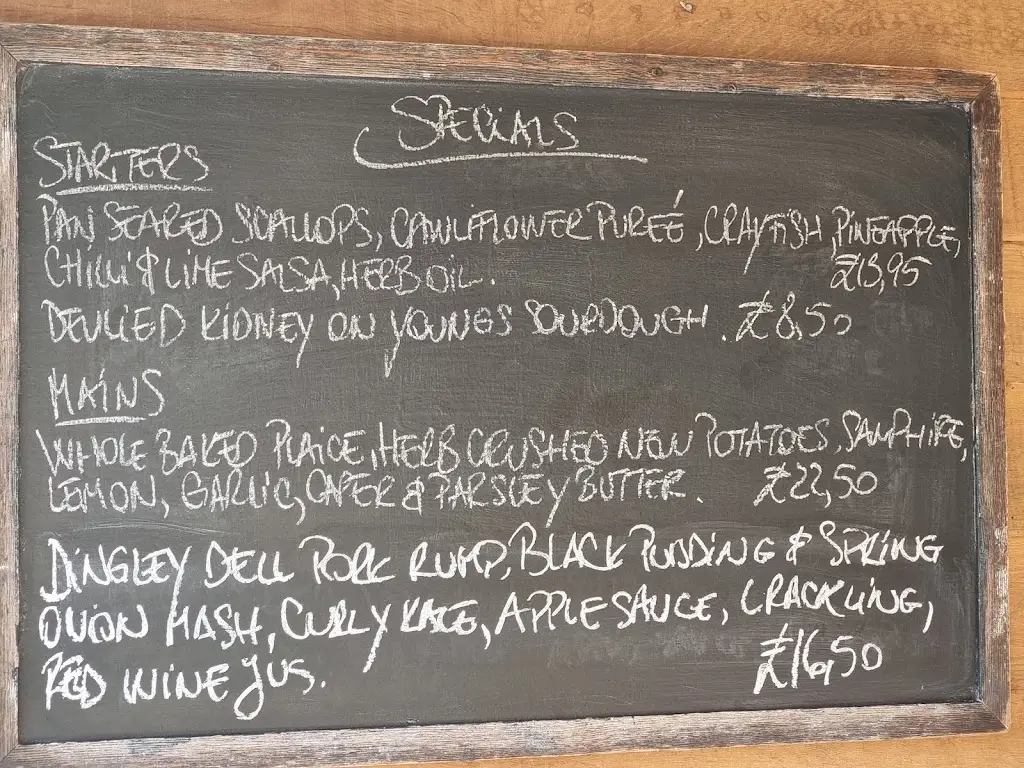 SPECIALS
STARTERS
PAN SEARED SCALLOPS, CAULIFLOWER PUREÉ, CRAYFISH, PINEAPPLE,
CHILLI & LIME SALSA, HERB OIL. £13,95
DEVILLED KIDNEY ON YOUNGS SOURDOUGH. £8,50
MAINS
WHOLE BAKED PLAICE, HERB CRUSHED NEW POTATOES, SAMPHIRE,
LEMON, GARLIC, CAPER & PARSLEY BUTTER. £22,50
DINGLEY DELL PORK RUMP, BLACK PUDDING & SPRING
ONION MASH, CURLY KALE, APPLE SAUCE, CRACKLING,
RED WINE JUS. £16,50